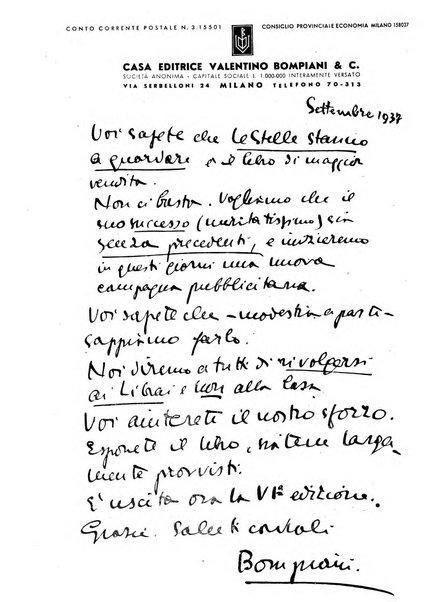 CONTO CORRENTE POSTALE N. 3.15501
CONSIGLIO PROVINCIALE ECONOMIA MILANO 158037
CASA EDITRICE VALENTINO BOMPIANI & C.
SOCIETÀ ANONIMA - CAPITALE SOCIALE L. 1.000.000 INTERAMENTE VERSATO
VIA SERBELLONI 24 MILANO TELEFONO 70-313
Settembre 1937
Voi sapete che le Stelle stanno
a guardare è il libro di maggior
vendita.
Non ci basta. Vogliamo che il
suo successo (meritatissimo) sia
senza precedenti, e inizieremo
in questi giorni una nuova
campagna pubblicitaria.
Voi sapete che - modestia a parte -
sappiamo farlo.
Noi diremo a tutti di rivolgersi
ai Librai e non alla Casa.
Voi aiuterete il nostro sforzo.
Esponete il libro, siatene larga
mente provvisti.
E' uscita ora la VIª edizione.
Grazie. Saluti cordiali
Bompiani.